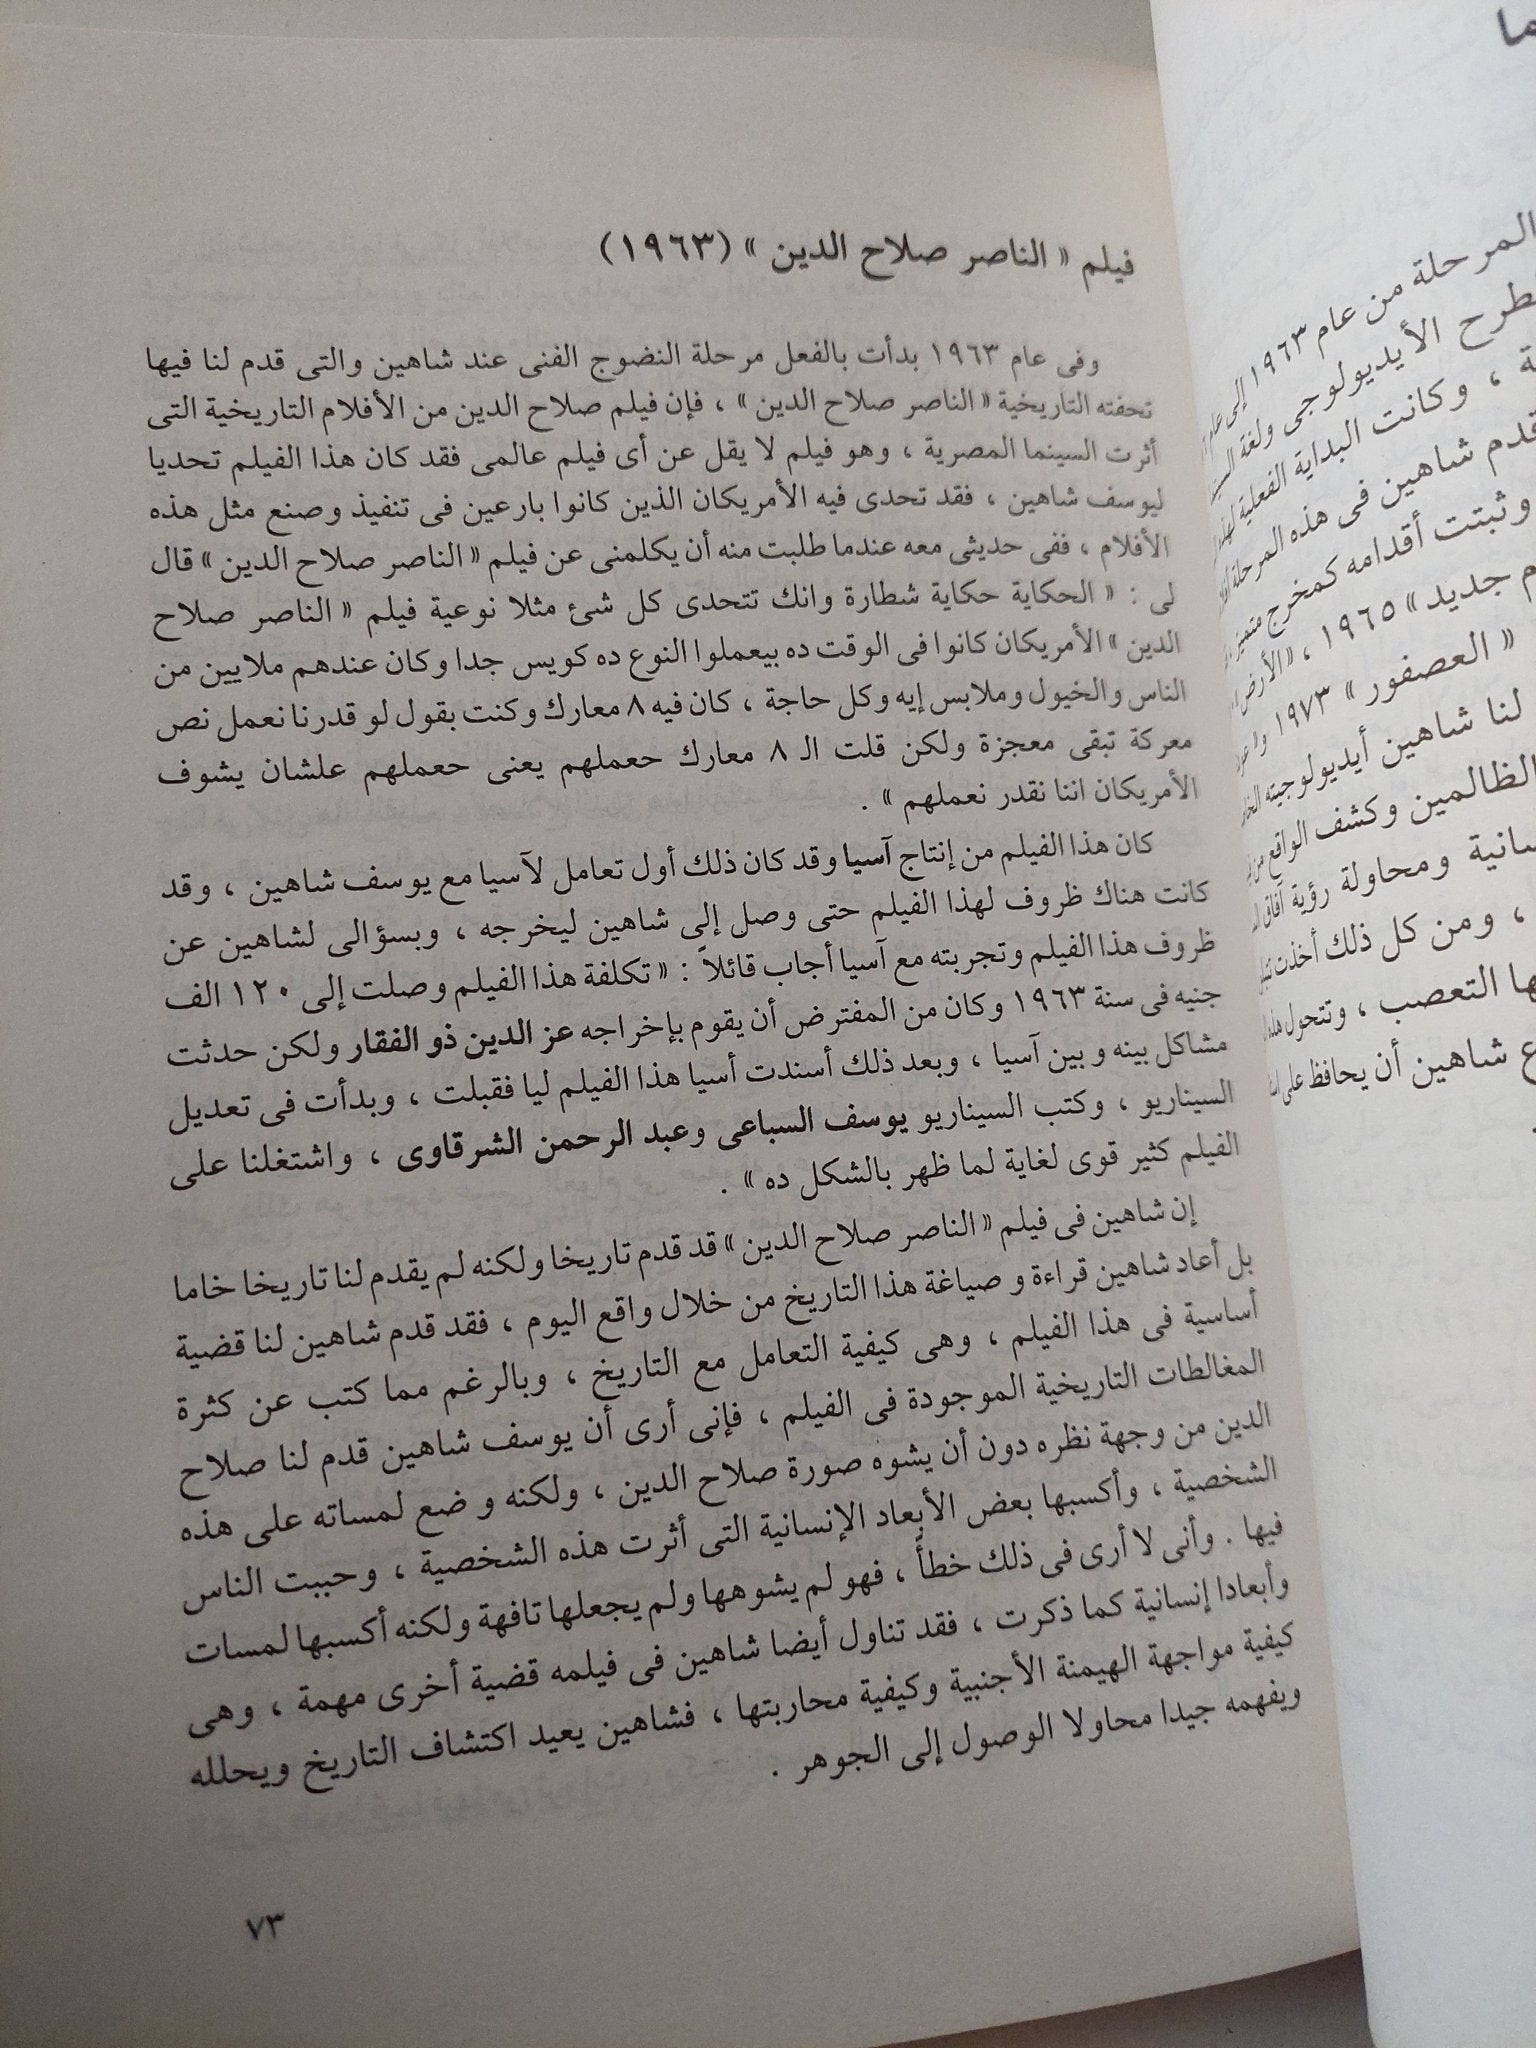 فيلم « الناصر صلاح الدين » (١٩٦٣)
وفى عام ١٩٦٣ بدأت بالفعل مرحلة النضوج الفنى عند شاهين والتى قدم لنا فيها
تحفته التاريخية « الناصر صلاح الدين » ، فإن فيلم صلاح الدين من الأفلام التاريخية التى
أثرت السينما المصرية ، وهو فيلم لا يقل عن أى فيلم عالمى فقد كان هذا الفيلم تحديا
ليوسف شاهين ، فقد تحدى فيه الأمريكان الذين كانوا بارعين فى تنفيذ وصنع مثل هذه
الأفلام ، ففى حديثى معه عندما طلبت منه أن يكلمنى عن فيلم « الناصر صلاح الدين » قال
لى : « الحكاية حكاية شطارة وانك تتحدى كل شئ مثلا نوعية فيلم « الناصر صلاح
الدين » الأمريكان كانوا فى الوقت ده بيعملوا النوع ده كويس جدا وكان عندهم ملايين من
الناس والخيول وملابس إيه وكل حاجة ، كان فيه ٨ معارك وكنت بقول لو قدرنا نعمل نص
معركة تبقى معجزة ولكن قلت الـ ٨ معارك حعملهم يعنى حعملهم علشان يشوف
الأمريكان اننا نقدر نعملهم » .
كان هذا الفيلم من إنتاج آسيا وقد كان ذلك أول تعامل لآسيا مع يوسف شاهين ، وقد
كانت هناك ظروف لهذا الفيلم حتى وصل إلى شاهين ليخرجه ، وبسؤالى لشاهين عن
ظروف هذا الفيلم وتجربته مع آسيا أجاب قائلاً : « تكلفة هذا الفيلم وصلت إلى ١٢٠ الف
جنيه فى سنة ١٩٦٣ وكان من المفترض أن يقوم بإخراجه عز الدين ذو الفقار ولكن حدثت
مشاكل بينه وبين آسيا ، وبعد ذلك أسندت أسيا هذا الفيلم ليا فقبلت ، وبدأت فى تعديل
السيناريو ، وكتب السيناريو يوسف السباعى وعبد الرحمن الشرقاوى ، واشتغلنا على
الفيلم كثير قوى لغاية لما ظهر بالشكل ده » .
إن شاهين فى فيلم « الناصر صلاح الدين » قد قدم تاريخا ولكنه لم يقدم لنا تاريخا خاما
بل أعاد شاهين قراءة و صياغة هذا التاريخ من خلال واقع اليوم ، فقد قدم شاهين لنا قضية
أساسية فى هذا الفيلم ، وهى كيفية التعامل مع التاريخ ، وبالرغم مما كتب عن كثرة
المغالطات التاريخية الموجودة فى الفيلم ، فإنى أرى أن يوسف شاهين قدم لنا صلاح
الدين من وجهة نظره دون أن يشوه صورة صلاح الدين ، ولكنه وضع لمساته على هذه
الشخصية ، وأكسبها بعض الأبعاد الإنسانية التى أثرت هذه الشخصية ، وحببت الناس
فيها . وأنى لا أرى فى ذلك خطأً ، فهو لم يشوهها ولم يجعلها تافهة ولكنه أكسبها لمسات
وأبعادا إنسانية كما ذكرت ، فقد تناول أيضا شاهين فى فيلمه قضية أخرى مهمة ، وهى
كيفية مواجهة الهيمنة الأجنبية وكيفية محاربتها ، فشاهين يعيد اكتشاف التاريخ ويحلله
ويفهمه جيدا محاولا الوصول إلى الجوهر .
٧٣
المرحلة من عام ١٩٦٣ إلى عام
الأيديولوجى ولغة
، وكانت البداية الفعلية
قدم شاهين فى هذه المرحلة
وثبتت أقدامه كمخرج متميز
جديد » ١٩٦٥ ، « الأرض
« العصفور » ١٩٧٣
لنا شاهين أيديولوجيته
الظالمين وكشف الواقع من
ومحاولة رؤية آفاق
، ومن كل ذلك أخذت
التعصب ، وتتحول
شاهين أن يحافظ على